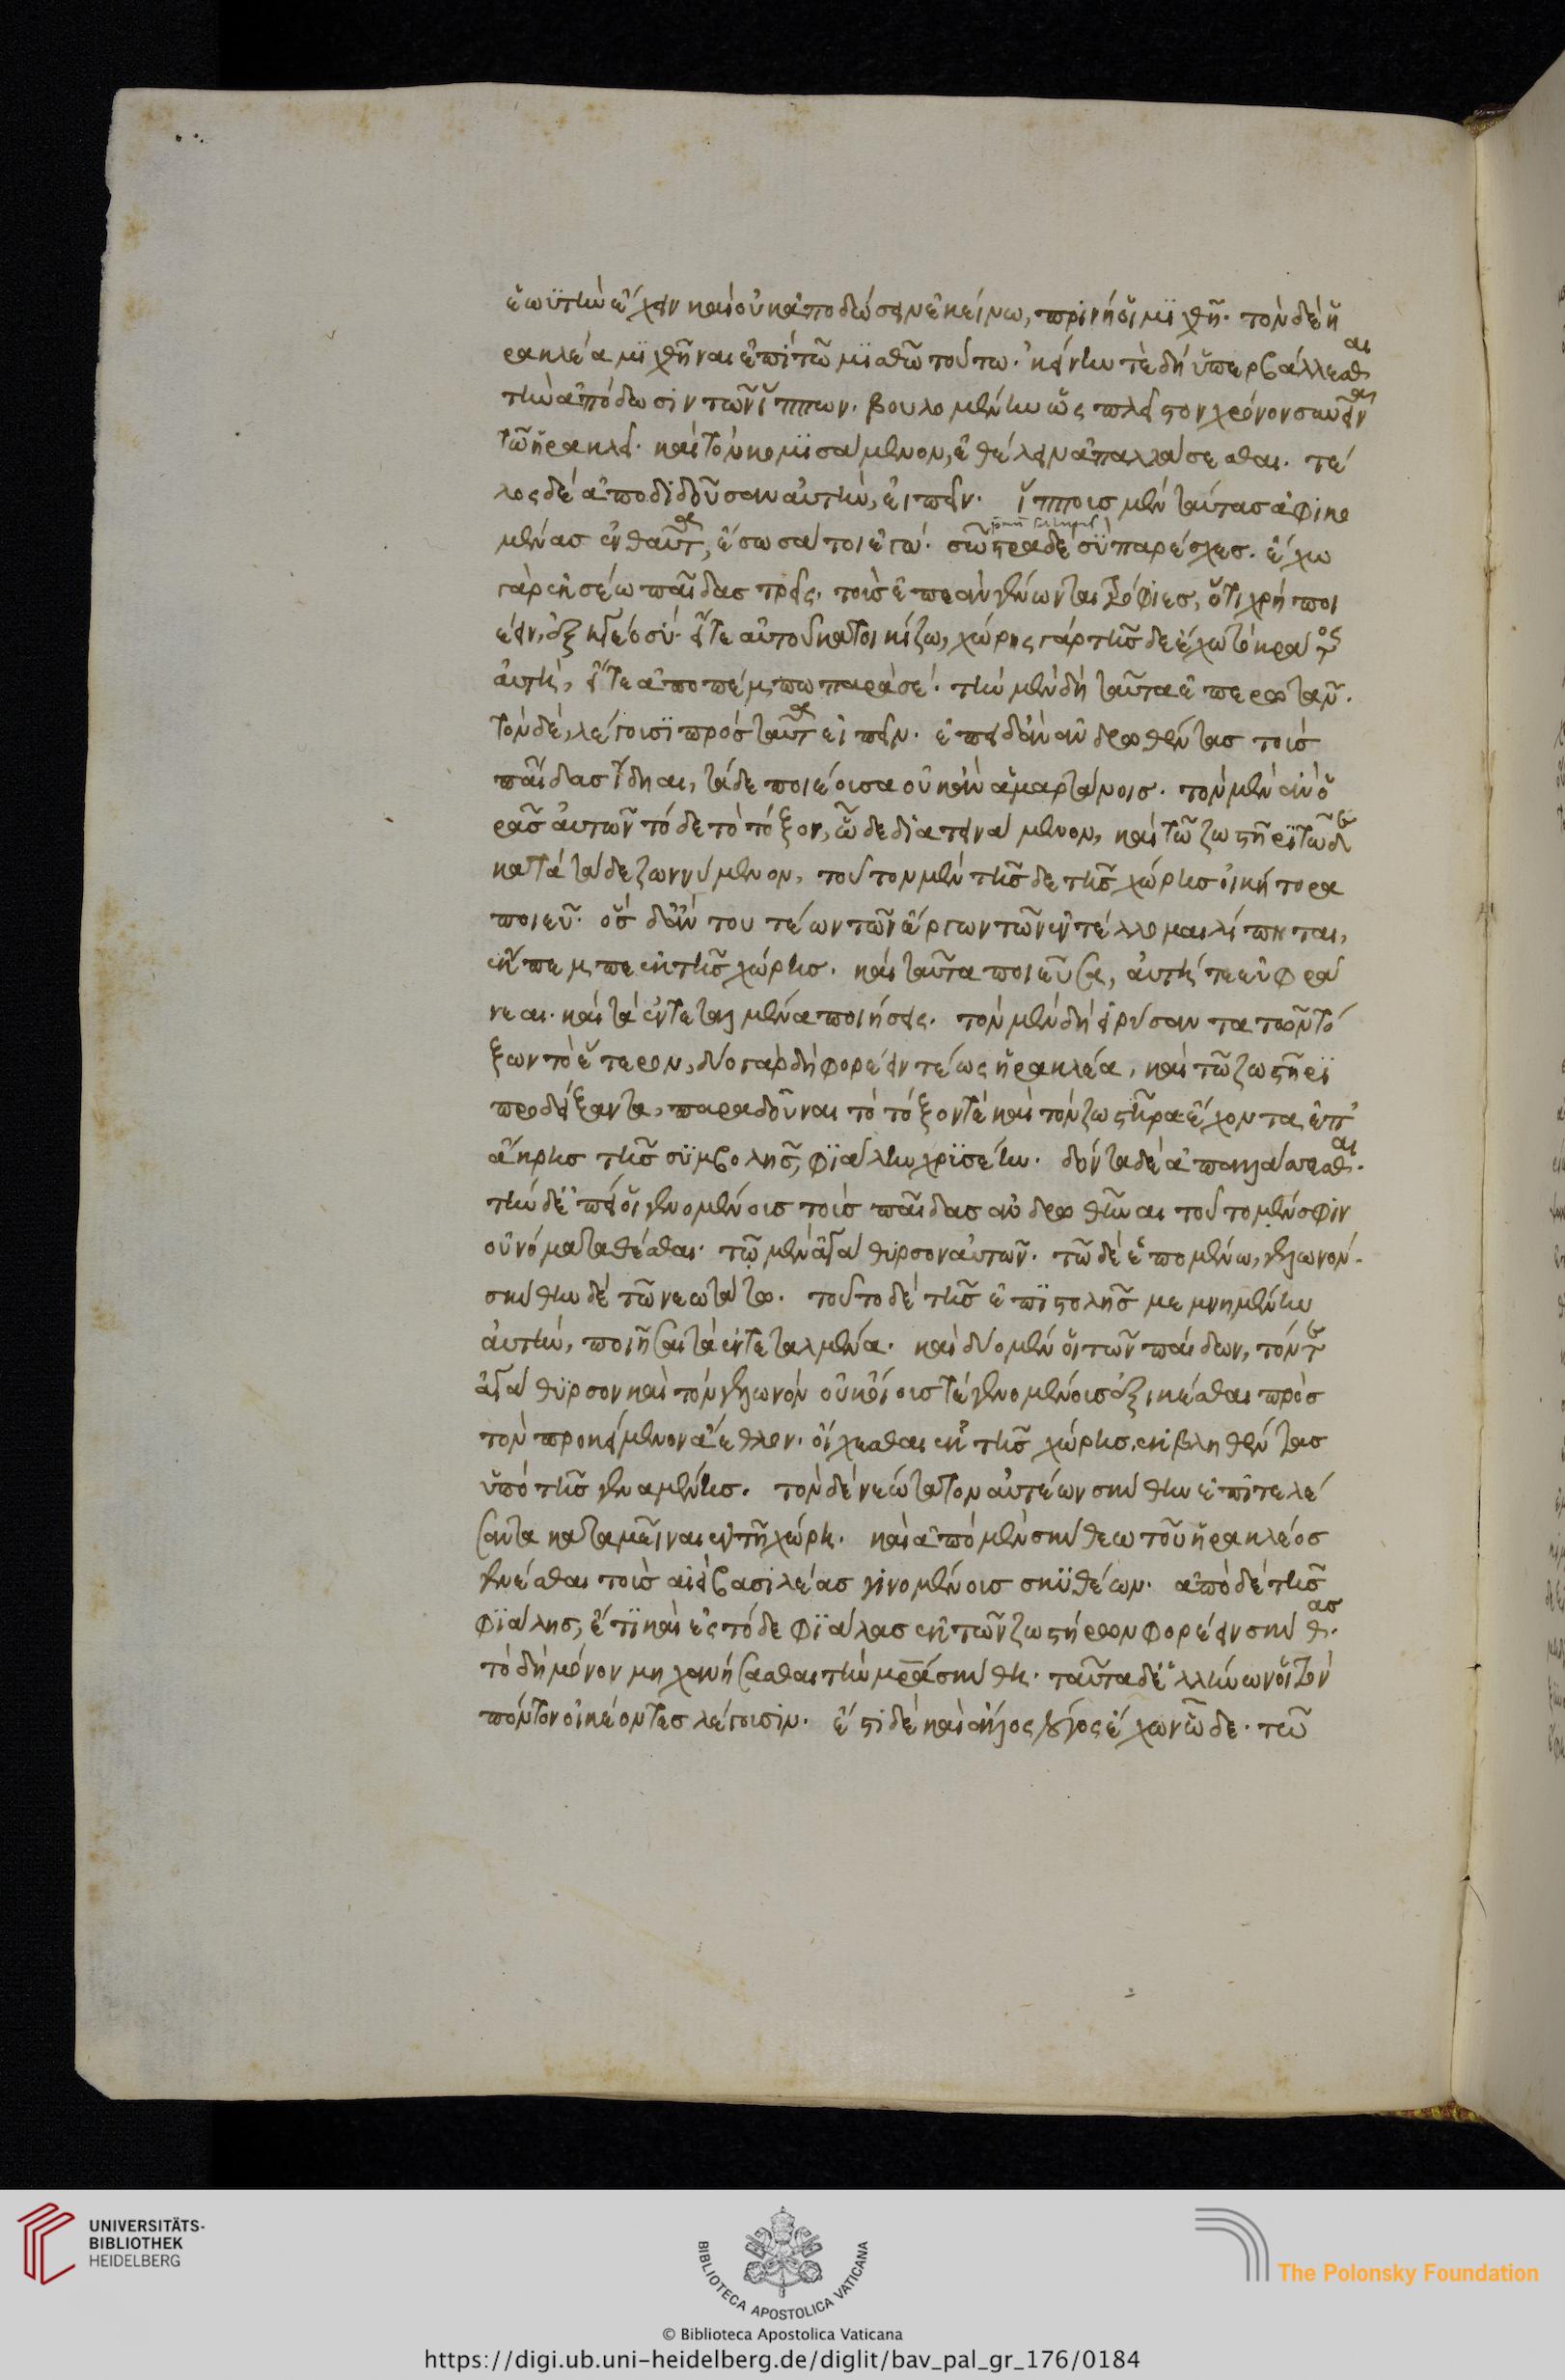 ἑωϋτὴν ἔχειν καὶ οὐκ ἀποδώσειν ἐκείνω, πρὶν ἤ οἱ μϊχθῆ. τὸν δὲ ἡ
ρακλέα μϊχθῆναι ἐπὶ τῶ μϊσθῶ τούτω. κείνην τὲ δὴ ὑπερβάλλεσθαι
τὴν ἀπόδωσιν τῶν ἵππων. βουλομένην ὡς πλεῖστον χρόνον συνεῖναι
τῶ ἡρακλεῖ. καὶ τὸν κομϊσάμενον, ἐθέλειν ἀπαλλάσεσθαι. τέ
λος δὲ ἀποδιδοῦσαν αὐτὴν, εἰπεῖν. ἵπποισ μὲν ταύτασ ἀφικο
μένασ ἐνθαῦτα, ἔσωσά τοι ἐγώ. σῶστρα δὲ σὺ παρέσχεσ. ἔχω
γὰρ ἐκ σέω παῖδασ τρεῖς. τοὺσ ἐπεὰν γένωνται τρόφιεσ, ὅτι χρὴ ποι
έειν, ἐξηγέο σύ. εἴτε αὐτοῦ κατοικίζω, χώρης γὰρ τῆσδε ἔχω τὸ κράτος
αὐτὴ, εἴτε ἀποπέμπω παρὰ σέ. τὴν μὲν δὴ ταῦτα ἐπερωτᾶν.
τὸν δὲ, λέγουσϊ πρὸς ταῦτα εἰπεῖν. ἐπειδὰν ἀνδρωθέντασ τοὺσ
παῖδασ ἴδηαι, τάδε ποιέουσα οὐκ ἂν ἁμαρτάνοισ. τὸν μὲν ἂν ὁ
ρᾶσ αὐτῶν τόδε τὸ τόξον, ὧδε διατεινάμενον, καὶ τῶ ζωστῆρϊ τῶδε
κατὰ τάδε ζωννύμενον, τοῦτον μὲν τῆσδε τῆσ χώρησ οἰκήτορα
ποιεῦ. ὃσ δ' ἂν τουτέων τῶν ἔργων τῶν ἐντέλλομαι λίπηται,
ἔκπεμπε ἐκ τῆσ χώρησ. καὶ ταῦτα ποιεῦσα, αὐτή τε εὐφρα
νέαι. καὶ τὰ ἐντεταλμένα ποιήσεις. τὸν μὲν δὴ εἰρύσαντα τῶν τό
ξων τὸ ἕτερον, δύο γὰρ δὴ φορέειν τέως ἡρακλέα, καὶ τῶ ζωστῆρϊ
προδείξαντα, παραδοῦναι τὸ τόξον τὲ καὶ τὸν ζωστῆρα ἔχοντα ἐπ'
ἄκρησ τῆσ συμβολῆσ, φϊάλην χρϊσέην. δόντα δὲ ἀπαλάσσεσθαι.
τὴν δ' ἐπεί οἱ γενομένουσ τοὺσ παῖδασ ἀνδρωθῆναι τοῦτο μὲν σφιν
οὐνόματα θέσθαι. τῶ μὲν ἀγάθυρσον αὐτῶν. τῶ δὲ ἑπομένω, γελωνόν.
σκύθην δὲ τῶ νεωτάτω. τοῦτο δὲ τῆσ ἐπϊστολῆσ μεμνημένην
αὐτὴν, ποιῆσαι τὰ ἐντεταλμένα. καὶ δύο μὲν οἱ τῶν παίδων, τόν τε
ἀγάθυρσον καὶ τὸν γελωνὸν οὐκ οἵουσ τὲ γενομένουσ ἐξικέσθαι πρὸσ
τὸν προκείμενον ἄεθλον. οἴχεσθαι ἐκ τῆσ χώρησ, ἐκβληθέντασ
ὑπὸ τῆσ γειναμένησ. τὸν δὲ νεώτατον αὐτέων σκύθην ἐπϊτελέ
σαντα καταμεῖναι ἐν τῆ χώρη. καὶ ἀπὸ μὲν σκύθεω τοῦ ἡρακλέοσ
γενέσθαι τοὺσ αἰεὶ βασιλέασ γϊνομένουσ σκϋθέων. ἀπὸ δὲ τῆσ
φϊάλης, ἔτϊ καὶ ἐς τόδε φϊάλασ ἐκ τῶν ζωστήρων φορέειν σκύθασ.
τὸ δὴ μόνον μηχανήσασθαι τὴν μρα σκύθη. ταῦτα δὲ ἑλλήνων οἱ τὸν
πόντον οἰκέοντεσ λέγουσϊν. ἔστι δὲ καὶ ἄλλος λόγος ἔχων ὧδε. τῶ
UNIVERSITÄTS-
BIBLIOTHEK
HEIDELBERG
BIBLIOTECA APOSTOLICA VATICANA
The Polonsky Foundation
© Biblioteca Apostolica Vaticana
https://digi.ub.uni-heidelberg.de/diglit/bav_pal_gr_176/0184